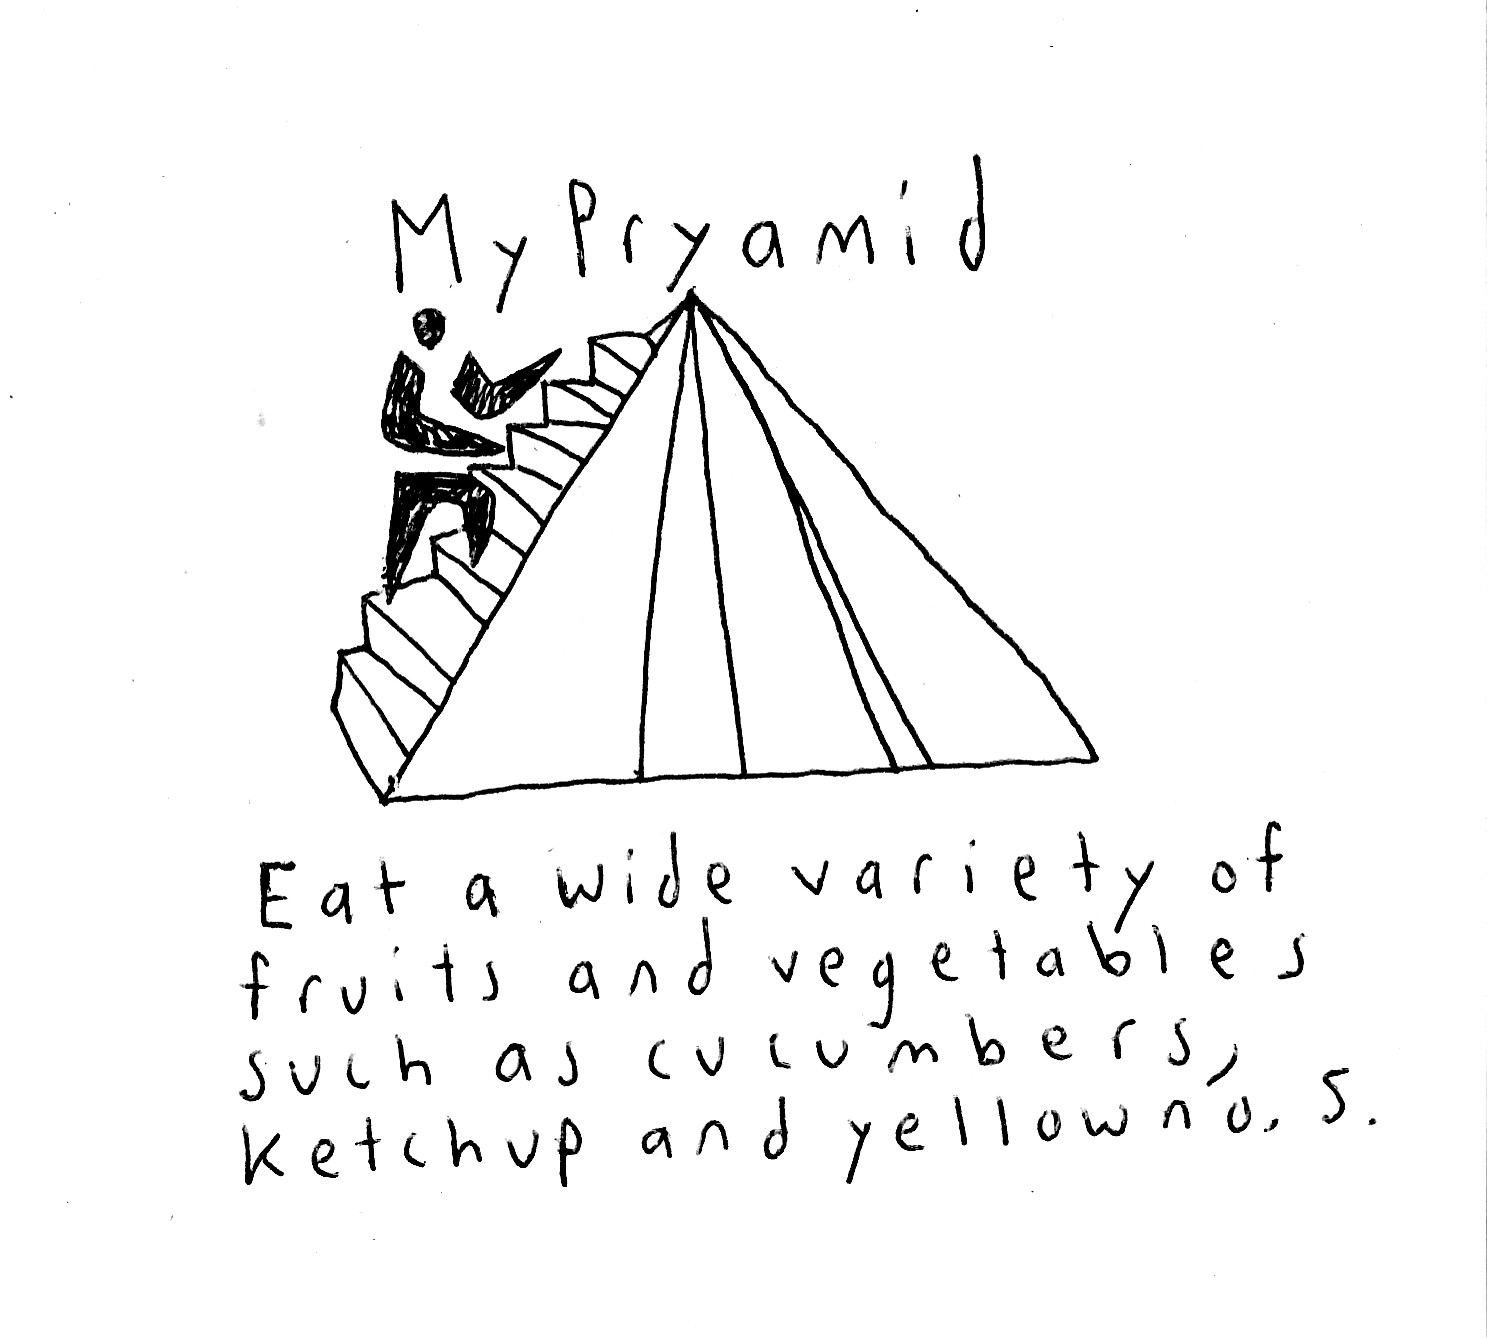 My Pryamid
Eat a wide variety of
fruits and vegetables
such as cucumbers,
ketchup and yellow no. 5.